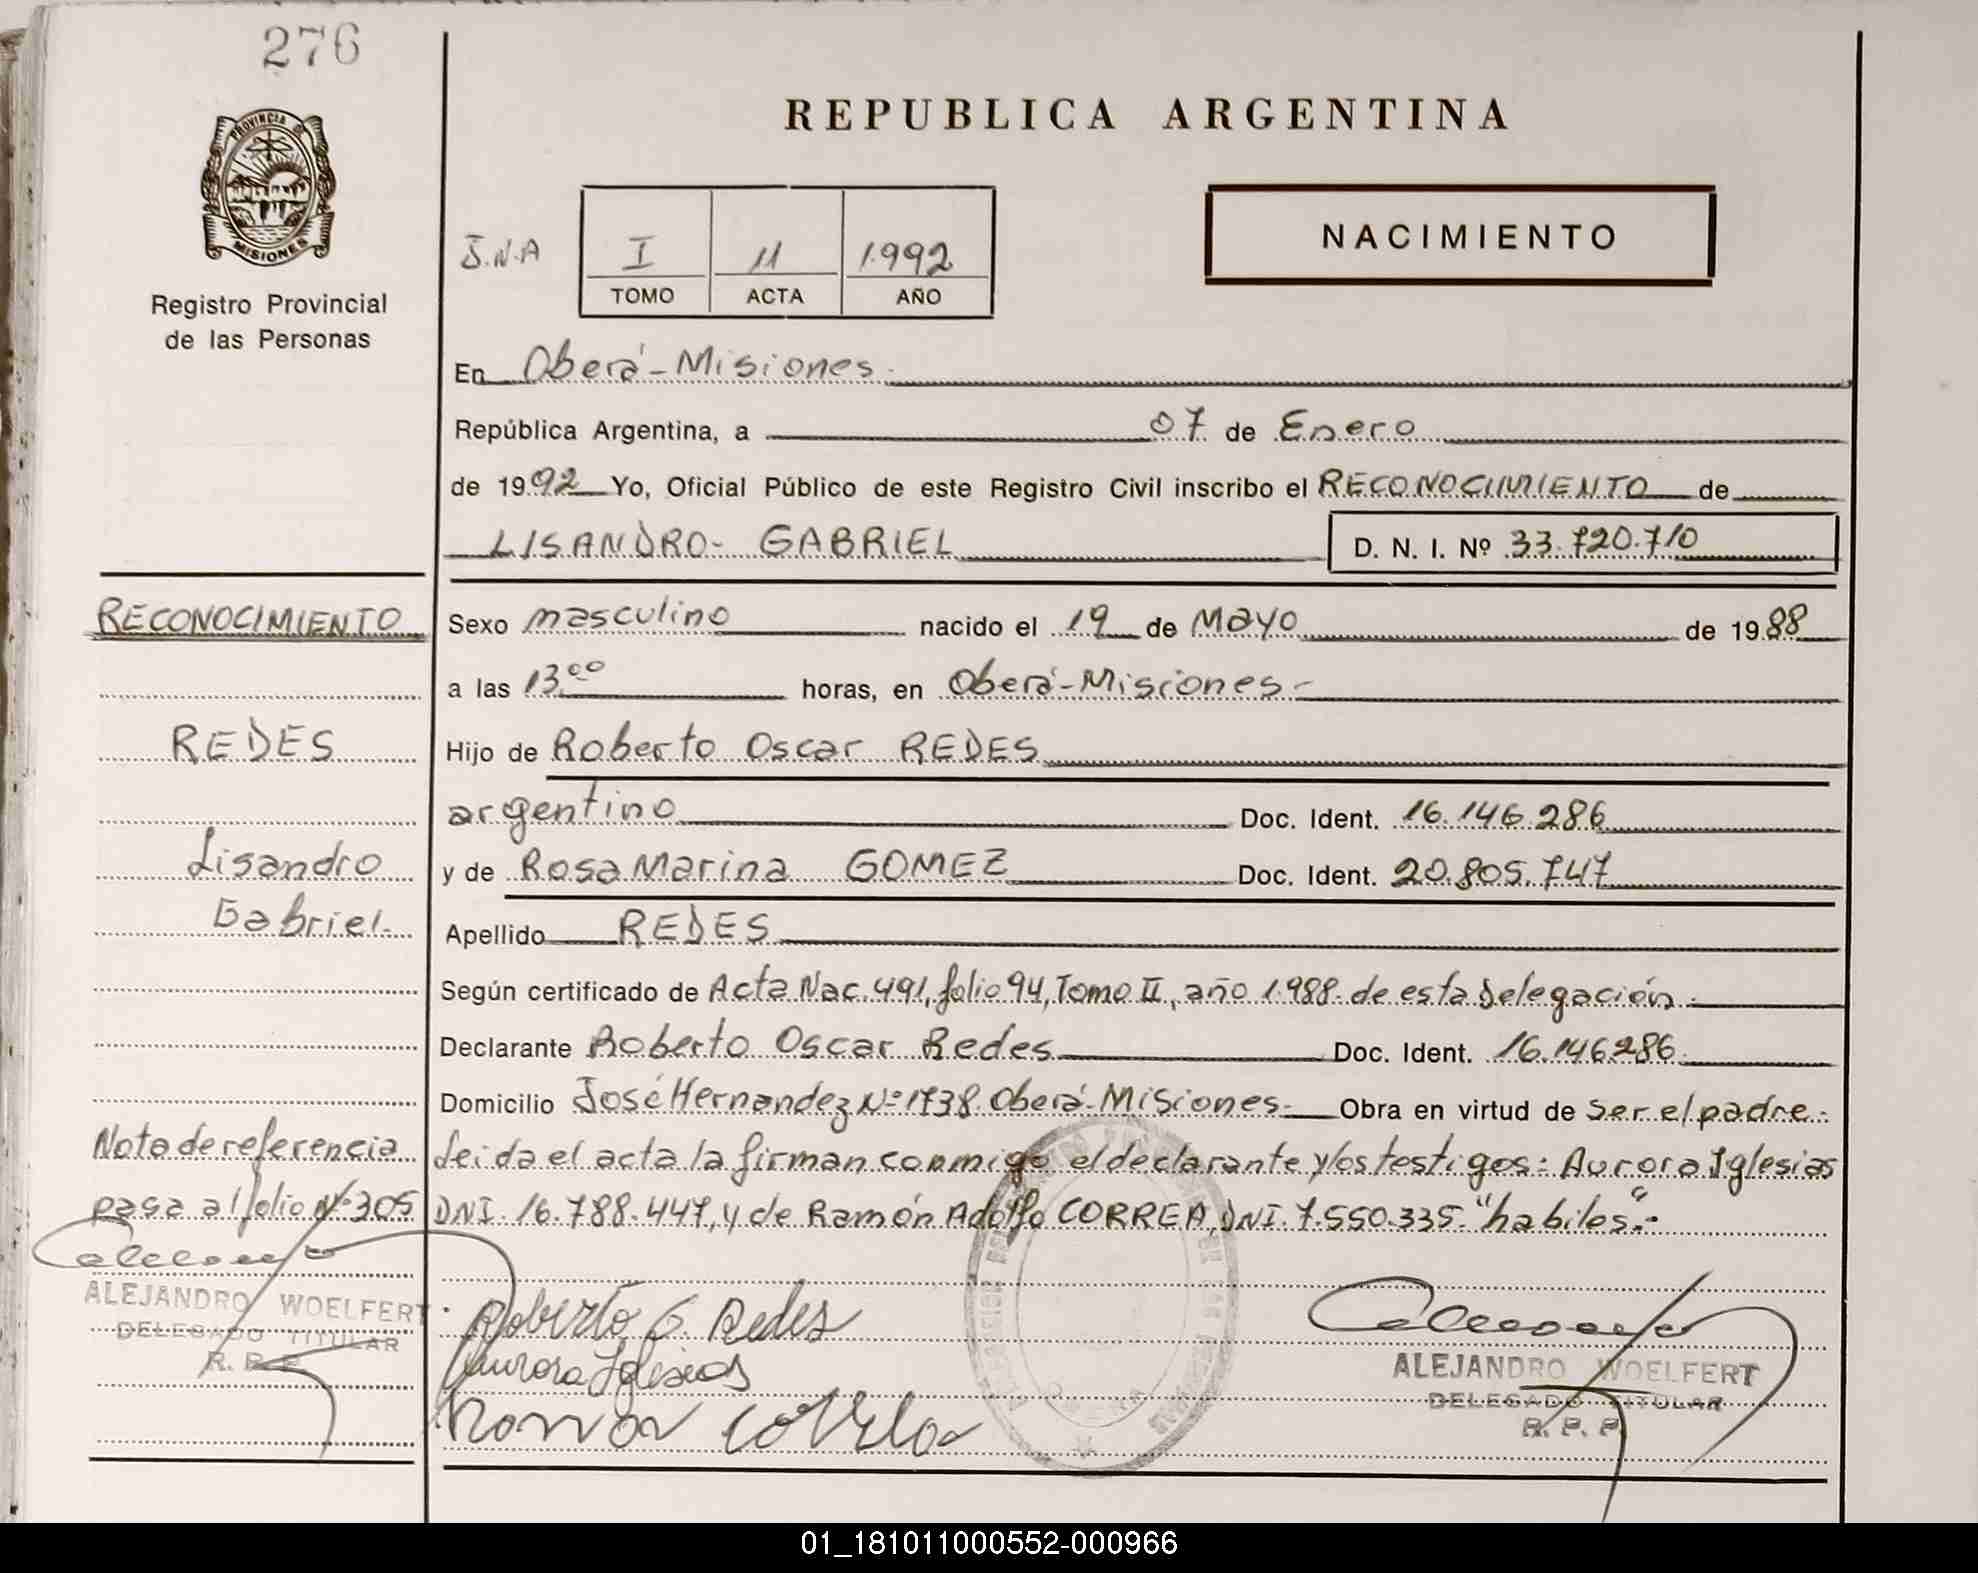 276
PROVINCIA DE
MISIONES
Registro Provincial
de las Personas
REPUBLICA ARGENTINA
NACIMIENTO
J.N.A I 11 1.992
TOMO ACTA AÑO
En Oberá-Misiones.
República Argentina, a 07 de Enero
de 1992 Yo, Oficial Público de este Registro Civil inscribo el RECONOCIMIENTO de
LISANDRO- GABRIEL D. N. I. Nº 33.720.710
RECONOCIMIENTO
REDES
Lisandro
Gabriel-
Nota de referencia
pasa al folio Nº 305
ALEJANDRO WOELFERT
DELEGADO TITULAR
R. P. P.
Sexo masculino nacido el 19 de Mayo de 1988
a las 13.00 horas, en Oberá-Misiones-
Hijo de Roberto Oscar REDES
argentino Doc. Ident. 16.146.286
y de Rosa Marina GOMEZ Doc. Ident. 20.805.747
Apellido REDES
Según certificado de Acta Nac. 491, folio 94, Tomo II, año 1.988. de esta Delegación.
Declarante Roberto Oscar Redes Doc. Ident. 16.146.286.
Domicilio José Hernandez Nº 1738. Oberá-Misiones- Obra en virtud de Ser el padre.
Leida el acta la firman conmigo el declarante y los testigos: Aurora Iglesias
DNI. 16.788.447, y de Ramón Adolfo CORREA, DNI. 7.550.335. "habiles".-
Roberto O. Redes
Aurora Iglesias
Ramon Correa
ALEJANDRO WOELFERT
DELEGADO TITULAR
R. P. P.
01_181011000552-000966